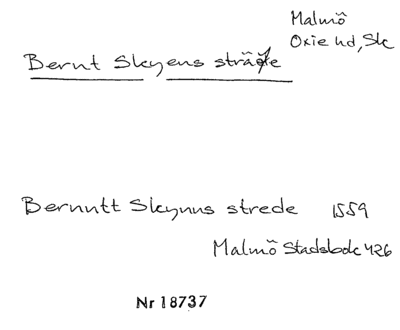 Malmö
Oxie hd, Sk
Bernt Skyens sträte
Bernutt Skynus strede 1559
Malmö Stadsbok 426
Nr 18737